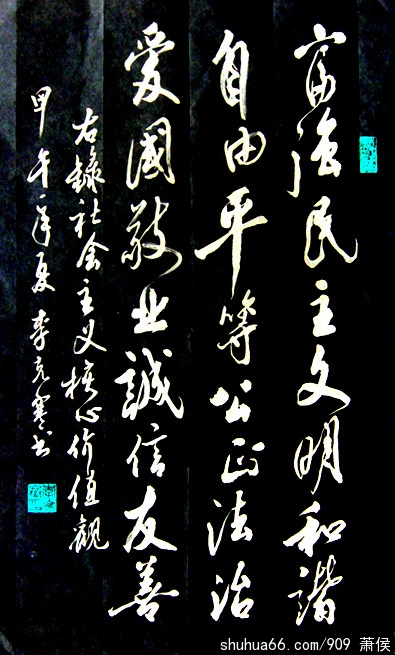 富强民主文明和谐
自由平等公正法治
爱国敬业誠信友善
右録社会主义核心价值观
甲午年夏李克寒书
shuhua66.com/909 萧侯